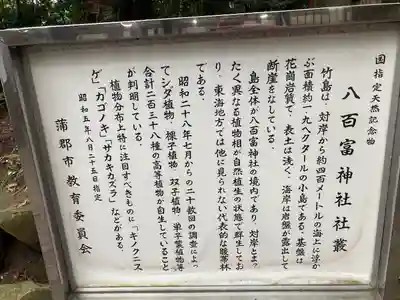 国指定天然記念物
八百富神社社叢
竹島は、対岸から約四百メートルの海上に浮か
ぶ面積約一・九ヘクタールの小島である。基盤は
花崗岩質で、表土は浅く、海岸は岩盤が露出して
断崖をなしている。
島全体が八百富神社の境内であり、対岸とまっ
たく異なる植物相が自然植生の状態で群生してお
り、東海地方では他に見られない代表的な暖帯林
である。
昭和二十八年七月からの二十数回の調査によっ
てシダ植物、裸子植物、双子植物、単子葉植物等
合計二百三十八種の高等植物が自生していること
が判明している。
植物分布上特に注目すべきものに「キノクニス
ゲ」「カゴノキ」「サカキカズラ」などがある。
昭和五年八月二十五日指定
蒲郡市教育委員会